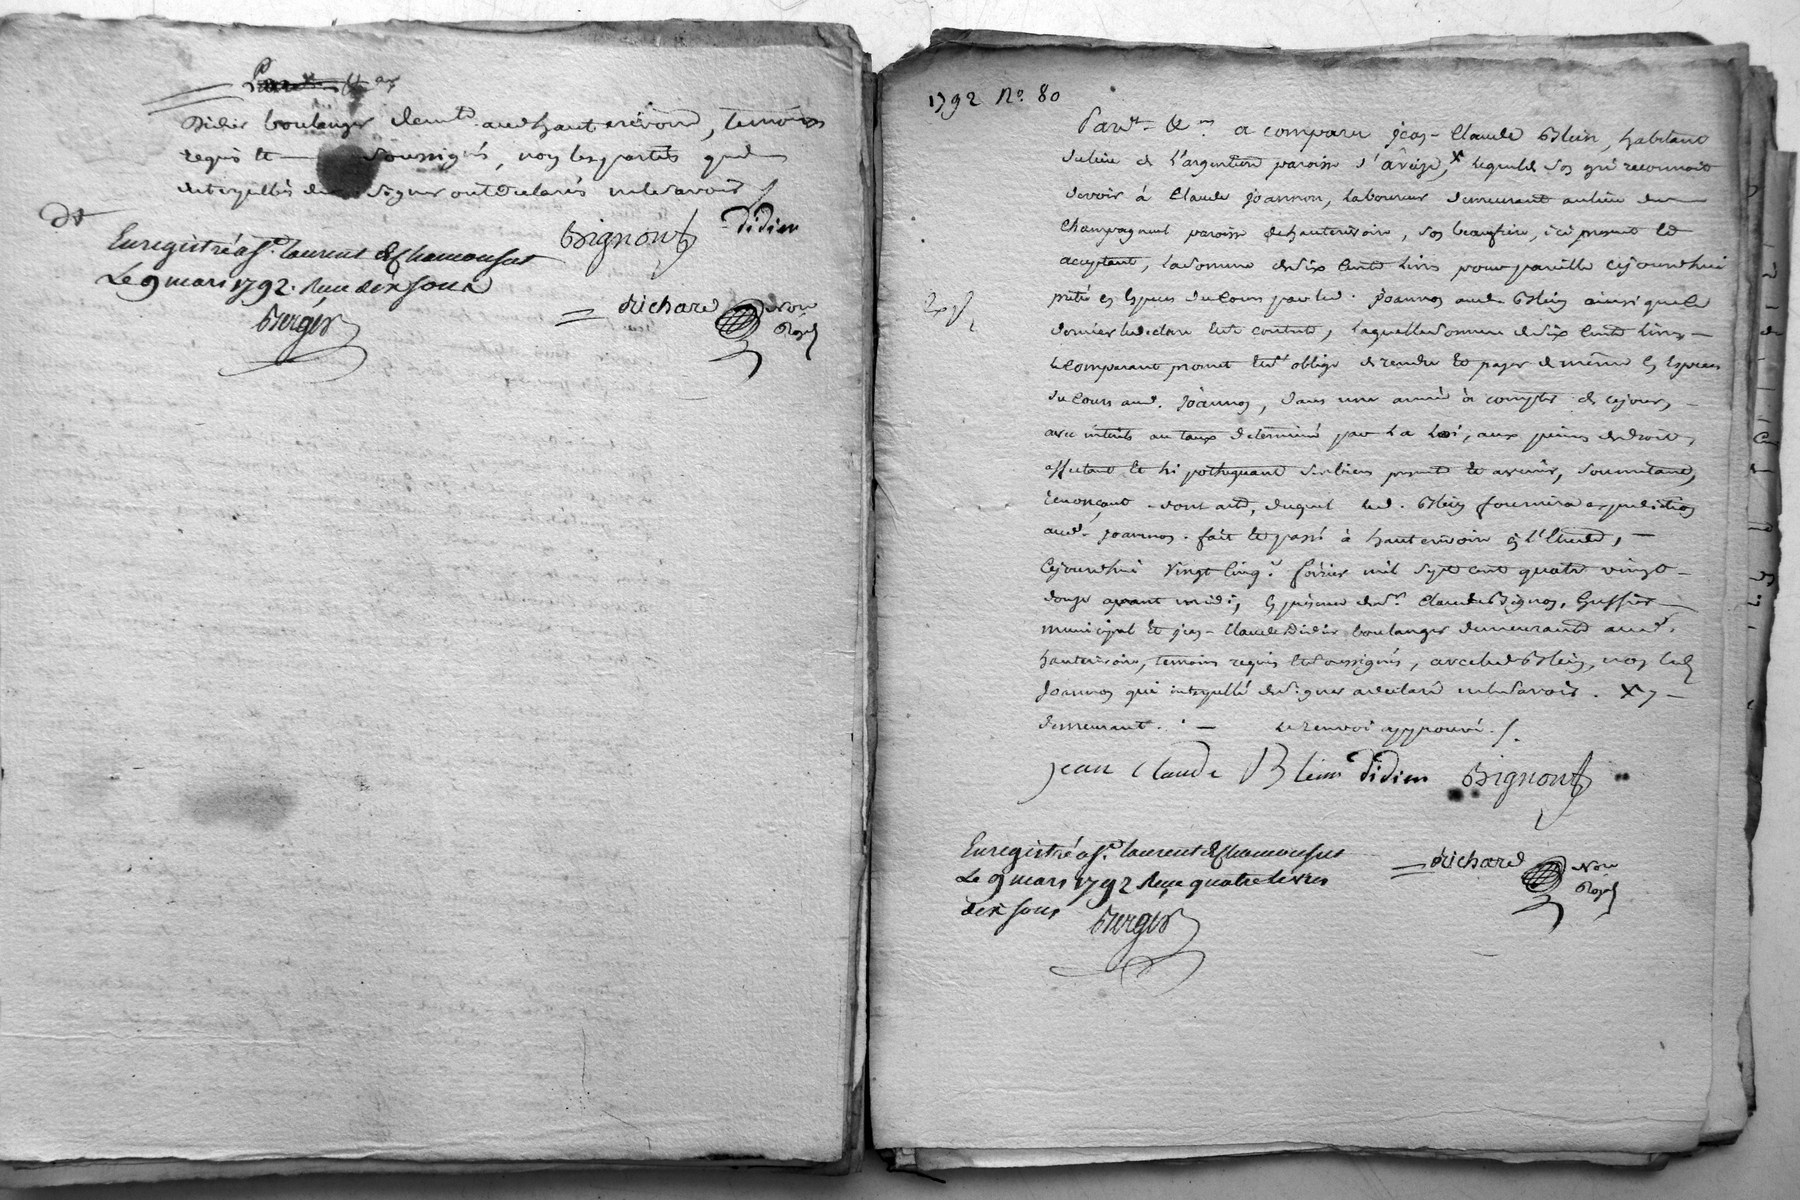 Didier boulanger demt. aud. hauterivoire, temoins
requis et soussignés, non les parties qui
interpellés de signer ont declarés ne le savoir
Bignon Didier
Enregistré a St. laurent de Chamousset
Le 9 mars 1792. Reçu dix sous
Berger
Richard Nore Royal
1792 No. 80
Pardt. &a. a comparu jean-Claude Blein, habitant
du lieu de l'argentiere paroisse d'aveize, X lequel de son gré reconnoit
devoir à Claude Joannon, laboureur demeurant au lieu de
Champagneul paroisse de hauterivoire, son beaufrere, ici present et
acceptant, la somme de six cents livres pour pareille cejourd'hui
prêté en especes du cours par led. Joannon aud. Blein ainsi que ce
dernier le declare et s'en contente, laquelle somme de six cents livres
le comparant promet et s'oblige de rendre et payer de même en especes
du cours aud. Joannon, dans une année à compter de ce jour,
avec interêts au taux determiné par la loi, aux peines de droit,
affectant et hipothequant ses biens presents et avenir, soumettant,
renonçant dont acte, duquel led. Blein fournira expedition
aud. Joannon. fait et passé à hauterivoire en l'Etude,
Cejourd'hui vingt cinq fevrier mil sept cent quatre vingt
douze avant midi, en presence de sr. Claude Bignon, Greffier
municipal et jean-Claude Didier boulanger demeurants aud.
hauterivoire, temoins requis et soussignés, avec led. Blein, non led.
Joannon qui interpellé de signer a declaré ne le savoir. X y
demeurant. le renvoi approuvé.
jean Claude Blein Didier Bignon
Enregistré a St. laurent de Chamousset
Le 9 mars 1792 Reçu quatre livres
dix sous Berger
Richard Nore Royal